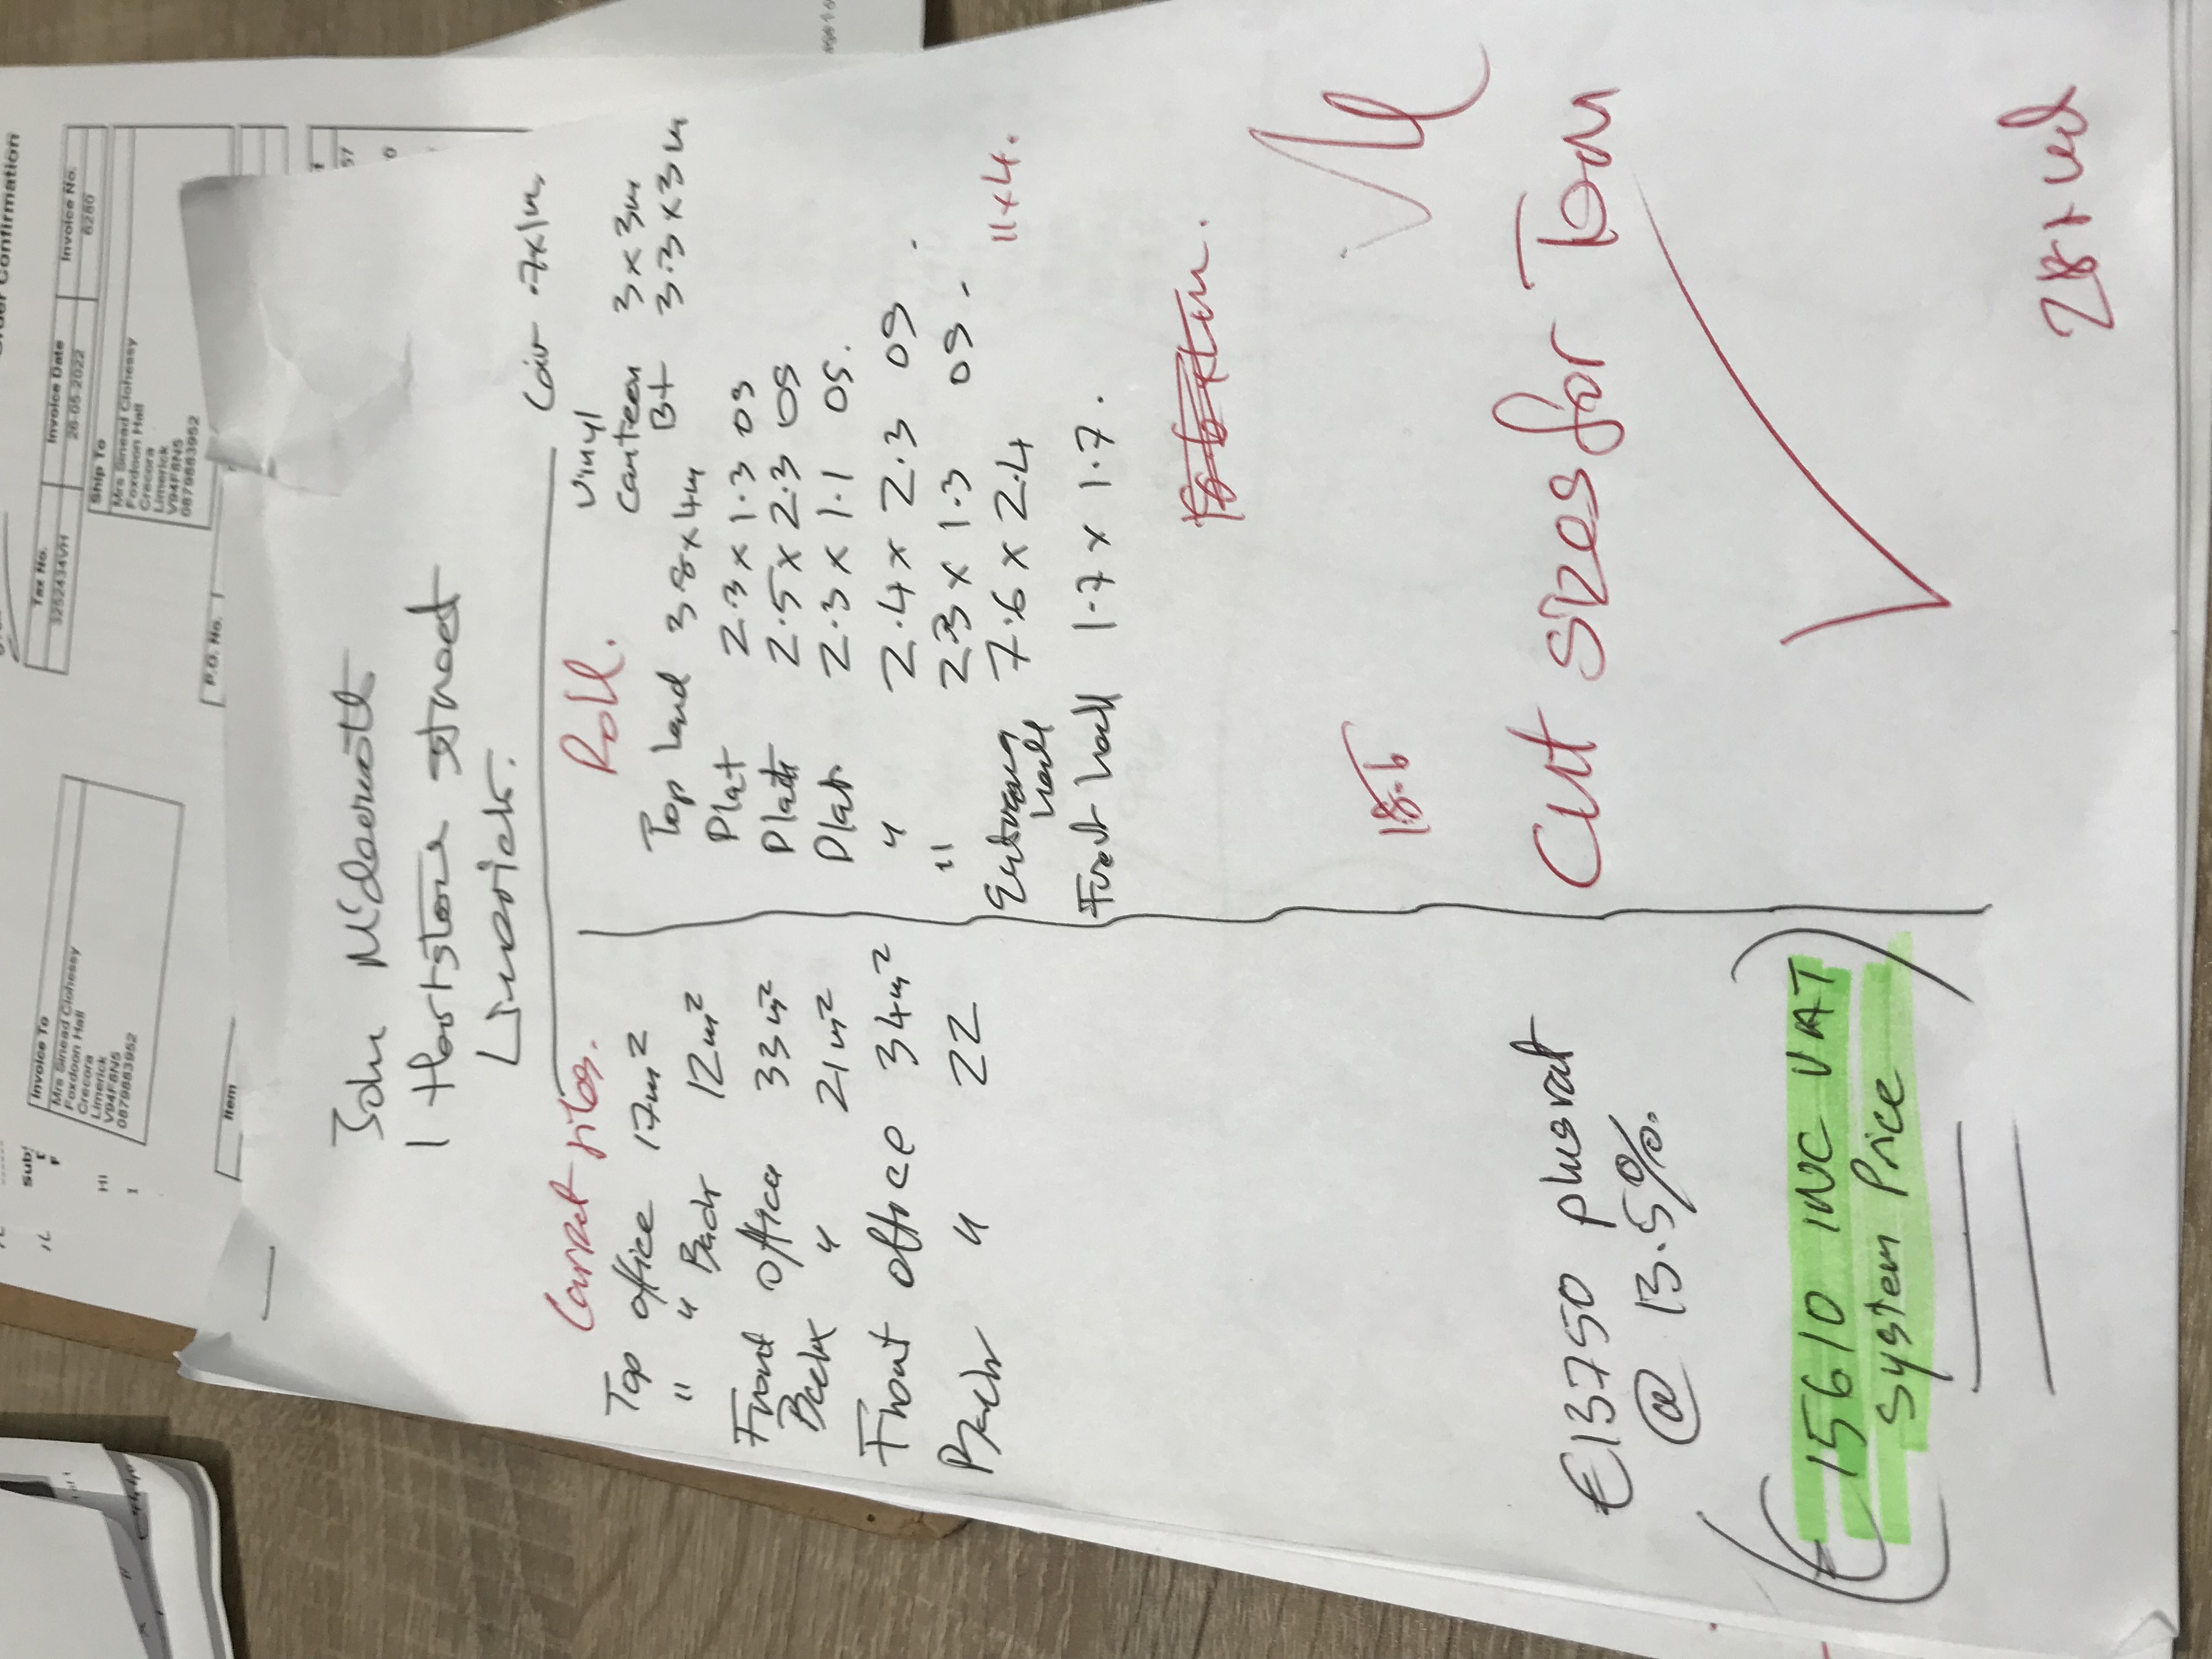 Order Confirmation
Tax No.
Invoice Date
Invoice No.
3252434VH
26-05-2022
6280
Invoice To
Mrs Sinead Clohessy
Foxdoon Hall
Crecora
Limerick
V94F8N5
0879883952
Ship To
Mrs Sinead Clohessy
Foxdoon Hall
Crecora
Limerick
V94F8N5
0879883952
P.O. No.
Item
John McDermott
1 Hartstone street
Limerick.
Carpet tiles.
Top office 17m2
" " Back 12m2
Front office 33m2
Back " 21m2
Front office 34m2
Back " 22
€13750 plus vat
@ 13.5%.
€15610 INC VAT
System Price
Roll.
Coir 7x1m.
Vinyl
Canteen 3x3m
Bt 3.3x3m
Top land 3.8x4m
Plat 2.3 x 1.3 OS
Platt 2.5 x 2.3 OS
Plat. 2.3 x 1.1 OS.
" 2.4 x 2.3 OS.
" 2.3 x 1.3 OS-
Entrance hall 7.6 x 2.4 11x4.
Front hall 1.7 x 1.7.
18.6
Cut sizes for Tom